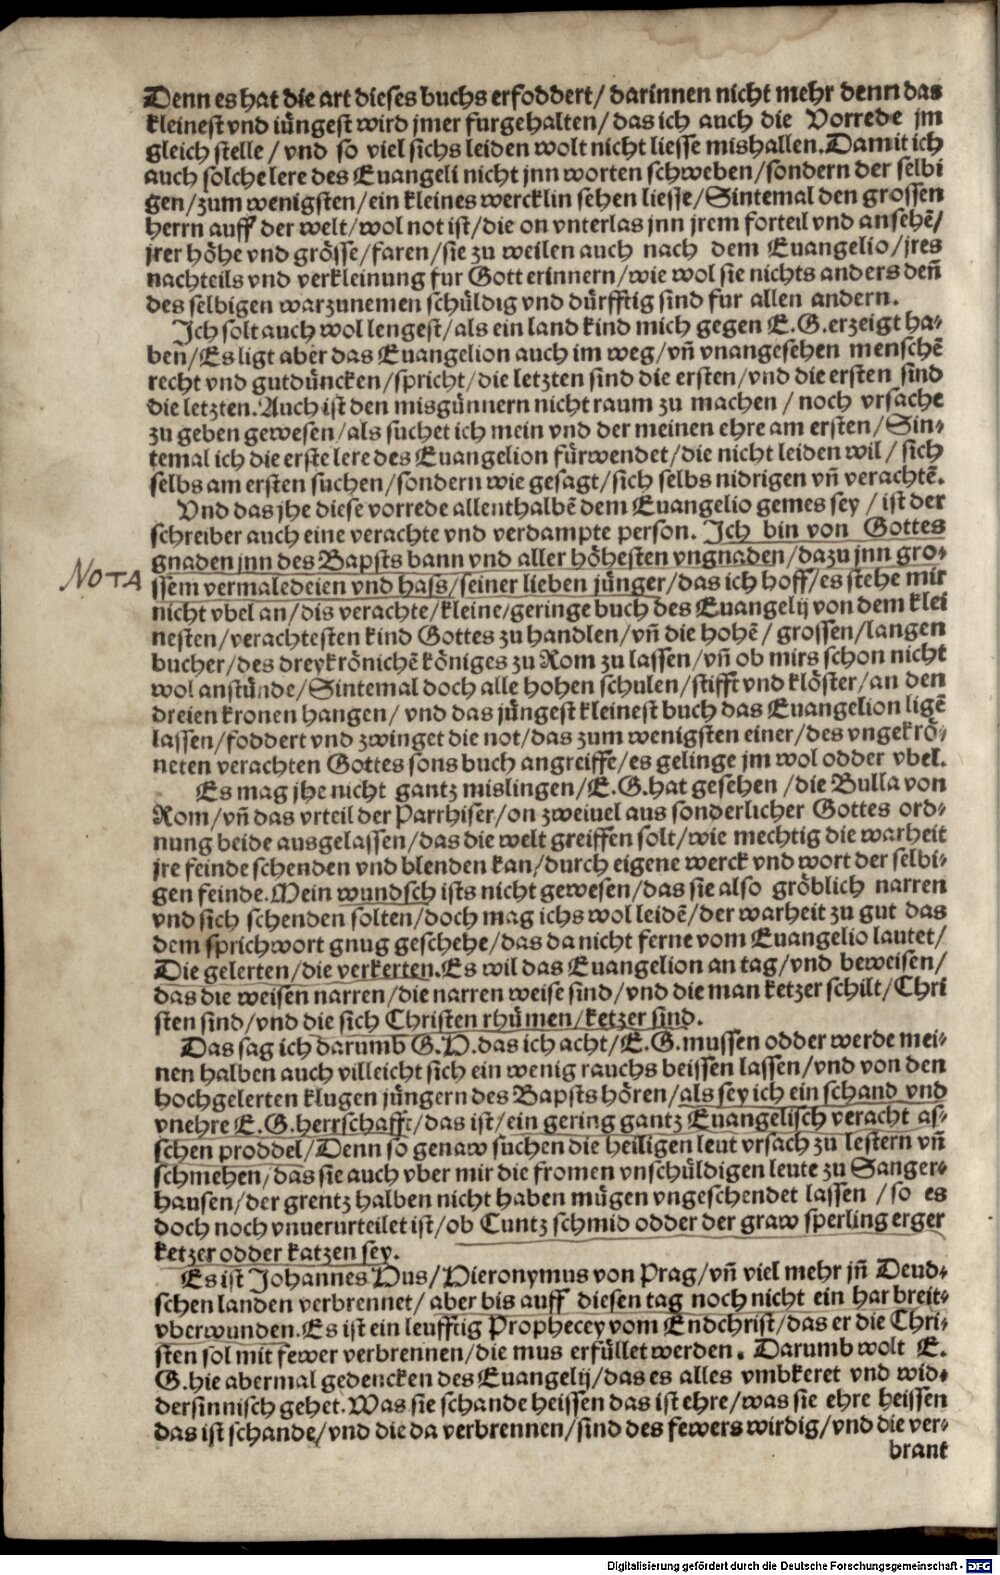 Denn es hat die art dieses buchs erfoddert/ darinnen nicht mehr denn das
kleinest vnd iüngest wird jmer furgehalten/ das ich auch die Vorrede jm
gleich stelle/ vnd so viel sichs leiden wolt nicht liesse mishallen. Damit ich
auch solche lere des Euangeli nicht jnn worten schweben/ sondern der selbi
gen/ zum wenigsten/ ein kleines wercklin sehen liesse/ Sintemal den grossen
herrn auff der welt/ wol not ist/ die on vnterlas jnn jrem forteil vnd ansehẽ/
jrer höhe vnd grösse/ faren/ sie zu weilen auch nach dem Euangelio/ jres
nachteils vnd verkleinung fur Gott erinnern/ wie wol sie nichts anders deñ
des selbigen warzunemen schüldig vnd dürfftig sind fur allen andern.
Ich solt auch wol lengest/ als ein land kind mich gegen E. G. erzeigt ha-
ben/ Es ligt aber das Euangelion auch im weg/ vñ vnangesehen menschẽ
recht vnd gutdüncken/ spricht/ die letzten sind die ersten/ vnd die ersten sind
die letzten. Auch ist den misgünnern nicht raum zu machen/ noch vrsache
zu geben gewesen/ als suchet ich mein vnd der meinen ehre am ersten/ Sin-
temal ich die erste lere des Euangelion fürwendet/ die nicht leiden wil/ sich
selbs am ersten suchen/ sondern wie gesagt/ sich selbs nidrigen vñ verachtẽ.
Vnd das jhe diese vorrede allenthalbẽ dem Euangelio gemes sey/ ist der
schreiber auch eine verachte vnd verdampte person. Ich bin von Gottes
gnaden jnn des Bapsts bann vnd aller höhesten vngnaden/ dazu jnn gro-
NOTA
ssem vermaledeien vnd hass/ seiner lieben jünger/ das ich hoff/ es stehe mir
nicht vbel an/ dis verachte/ kleine/ geringe buch des Euangelij von dem klei
nesten/ verachtesten kind Gottes zu handlen/ vñ die hohẽ/ grossen/ langen
bucher/ des dreykrönichẽ königes zu Rom zu lassen/ vñ ob mirs schon nicht
wol anstünde/ Sintemal doch alle hohen schulen/ stifft vnd klöster/ an den
dreien kronen hangen/ vnd das jüngest kleinest buch das Euangelion ligẽ
lassen/ foddert vnd zwinget die not/ das zum wenigsten einer/ des vngekrö-
neten verachten Gottes sons buch angreiffe/ es gelinge jm wol odder vbel.
Es mag jhe nicht gantz mislingen/ E. G. hat gesehen/ die Bulla von
Rom/ vñ das vrteil der Parrhiser/ on zweiuel aus sonderlicher Gottes ord-
nung beide ausgelassen/ das die welt greiffen solt/ wie mechtig die warheit
jre feinde schenden vnd blenden kan/ durch eigene werck vnd wort der selbi-
gen feinde. Mein wundsch ists nicht gewesen/ das sie also gröblich narren
vnd sich schenden solten/ doch mag ichs wol leidẽ/ der warheit zu gut das
dem sprichwort gnug geschehe/ das da nicht ferne vom Euangelio lautet/
Die gelerten/ die verkerten. Es wil das Euangelion an tag/ vnd beweisen/
das die weisen narren/ die narren weise sind/ vnd die man ketzer schilt/ Chri
sten sind/ vnd die sich Christen rhümen/ ketzer sind.
Das sag ich darumb G. H. das ich acht/ E. G. mussen odder werde mei-
nen halben auch villeicht sich ein wenig rauchs beissen lassen/ vnd von den
hochgelerten klugen jüngern des Bapsts hören/ als sey ich ein schand vnd
vnehre E. G. herrschafft/ das ist/ ein gering gantz Euangelisch veracht as-
schen proddel/ Denn so genaw suchen die heiligen leut vrsach zu lestern vñ
schmehen/ das sie auch vber mir die fromen vnschüldigen leute zu Sanger-
hausen/ der grentz halben nicht haben mügen vngeschendet lassen/ so es
doch noch vnuerurteilet ist/ ob Cuntz schmid odder der graw sperling erger
ketzer odder katzen sey.
Es ist Johannes Hus/ Hieronymus von Prag/ vñ viel mehr jñ Deud-
schen landen verbrennet/ aber bis auff diesen tag noch nicht ein har breit-
vberwunden. Es ist ein leufftig Prophecey vom Endchrist/ das er die Chri-
sten sol mit fewer verbrennen/ die mus erfüllet werden. Darumb wolt E.
G. hie abermal gedencken des Euangelij/ das es alles vmbkeret vnd wid-
dersinnisch gehet. Was sie schande heissen das ist ehre/ was sie ehre heissen
das ist schande/ vnd die da verbrennen/ sind des fewers wirdig/ vnd die ver-
brant
Digitalisierung gefördert durch die Deutsche Forschungsgemeinschaft - DFG